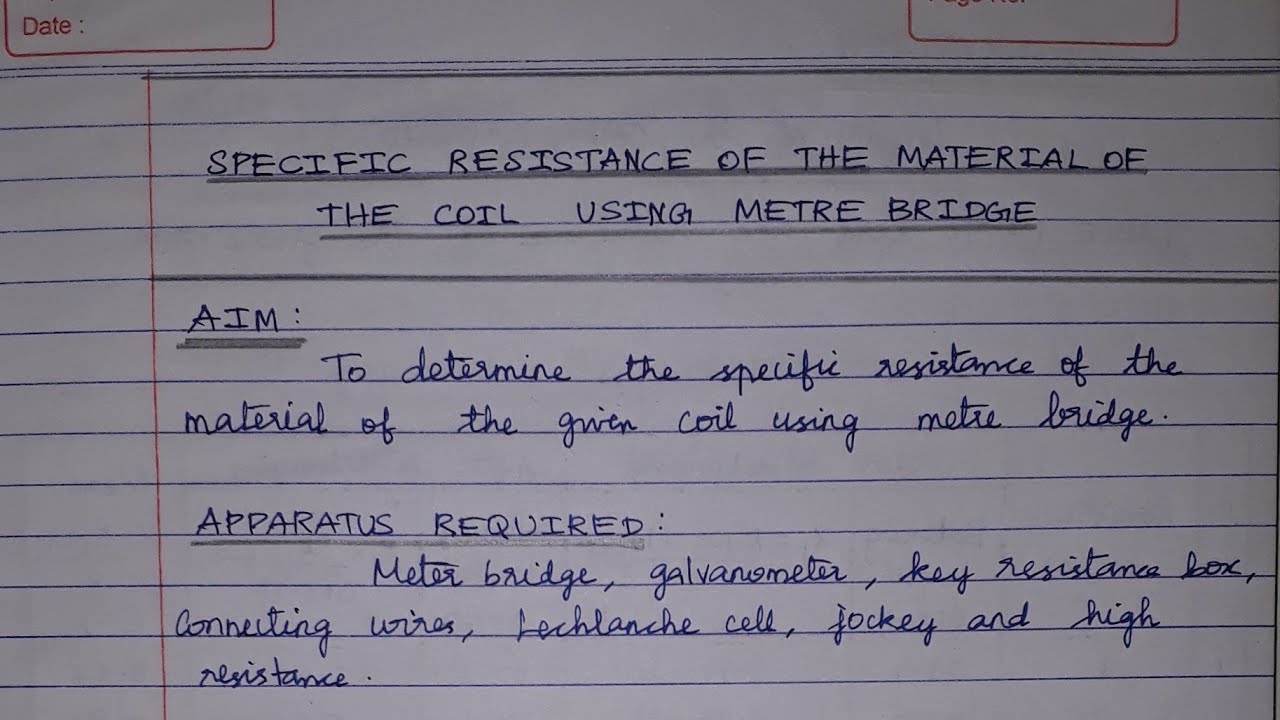 Date :
SPECIFIC RESISTANCE OF THE MATERIAL OF
THE COIL USING METRE BRIDGE
AIM :
To determine the specific resistance of the
material of the given coil using metre bridge.
APPARATUS REQUIRED :
Meter bridge, galvanometer, key resistance box,
Connecting wires, Lechlanche cell, jockey and high
resistance.